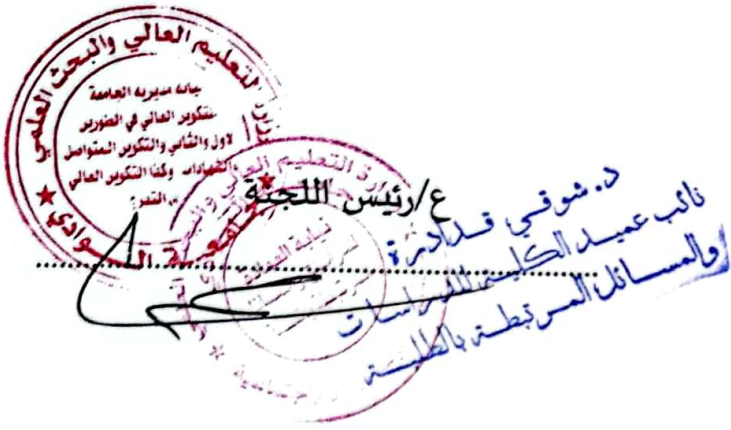 لتعليم العالي والبحث العلمي
نيابة مديرية الجامعة
للتكوين العالي في الطورين
لاول والثاني والتكوين المتواصل
والشهادات وكذا التكوين العالي
التدرج
جامعة الوادي
رة التعليم العالي والب
نيابة العمادة
ع/رئيس اللجنة
د. شوقي قدادرة
نائب عميد الكلية للدراسات
والمسائل المرتبطة بالطلبة